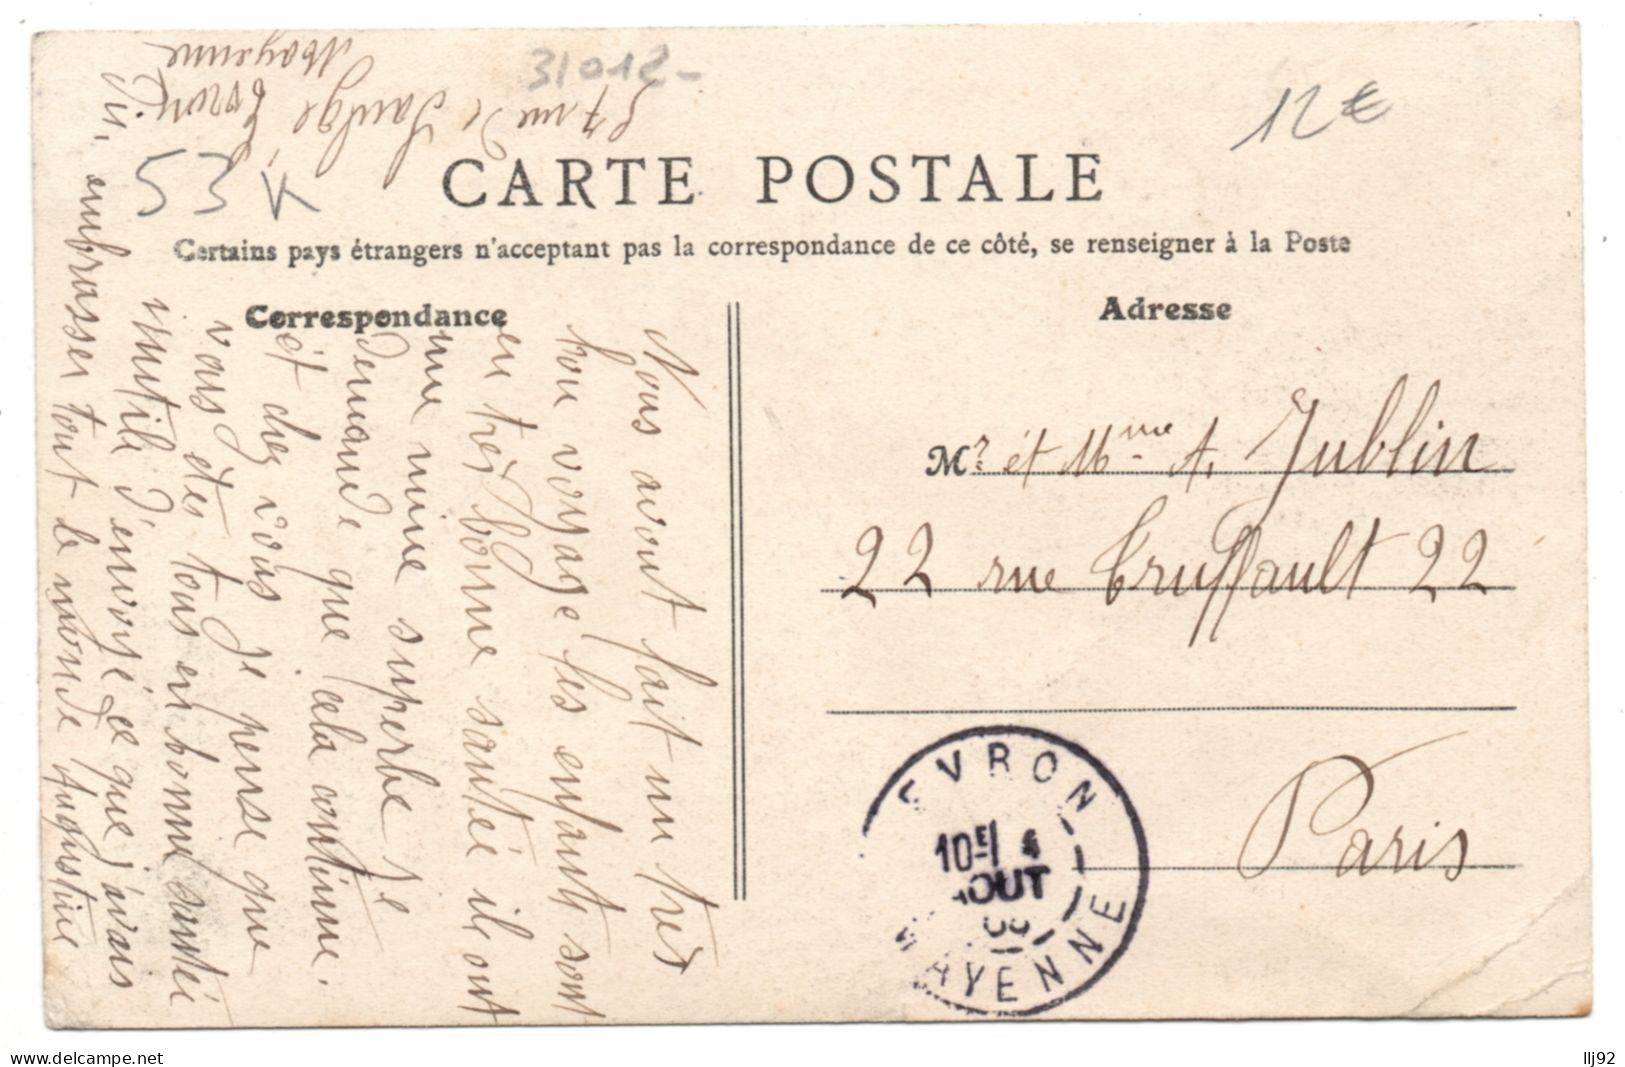 31012-
12€
57 rue de Saulgé Evron
Mayenne
53 K
CARTE POSTALE
Certains pays étrangers n'acceptant pas la correspondance de ce côté, se renseigner à la Poste
Correspondance
Adresse
Nous avont fait un tres
bon voyage les enfants sont
en très bonne santée ils ont
une mine superbe je
demande que cela continue.
ét chez vous je pense que
vous étes tous en bonne santée
inutile d'envoyé ce que j'avais
embrasser tout le monde Augustine
Mr. ét Mme A. Jublin
22 rue Truffault 22
Paris
EVRON
10E 4
AOUT
MAYENNE
www.delcampe.net
llj92